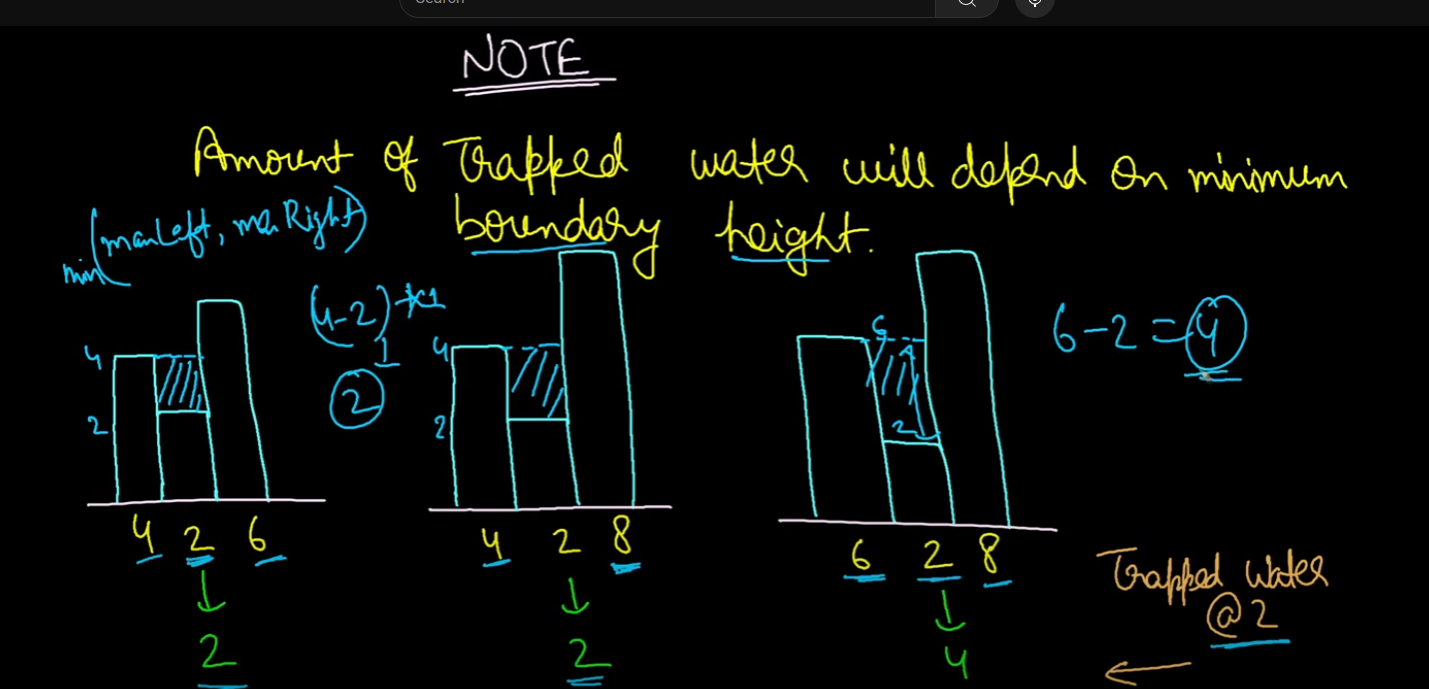 Search
NOTE
Amount of Trapped water will depend on minimum
boundary height.
min(maxLeft, maxRight)
(4-2)*1
1
2
4
2
4
2
6
2
6-2=4
4 2 6
4 2 8
6 2 8
2
2
4
Trapped Water
@2